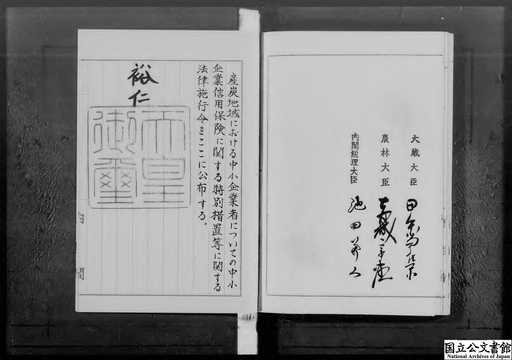 大蔵大臣 田中角栄
農林大臣
内閣総理大臣 池田勇人
産炭地域における中小企業者についての中小
企業信用保険に関する特別措置等に関する
法律施行令をここに公布する。
裕仁
天皇
御璽
国立公文書館
National Archives of Japan